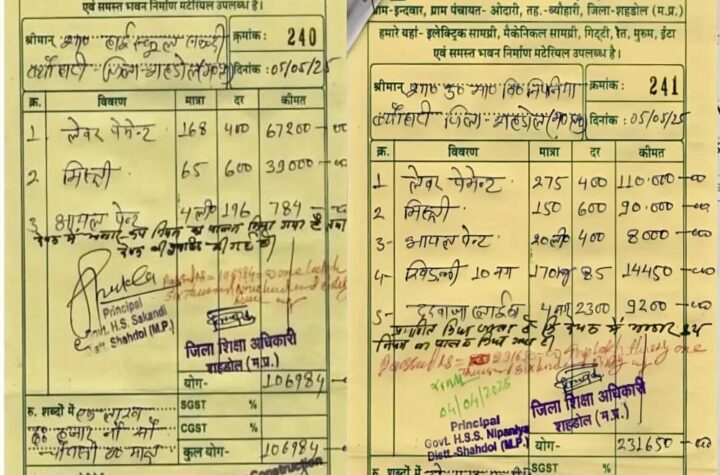 एवं समस्त भवन निर्माण मटेरियल उपलब्ध है।
श्रीमान् शास० हाई स्कूल सकन्दी क्रमांक: 240
ब्यौहारी जिला-शहडोल (म०प्र०) दिनांक: 05/05/25
क्र. विवरण मात्रा दर कीमत
1 लेबर पेमेन्ट 168 400 67200-00
2 मिस्त्री 65 600 39000-00
3 आयल पेन्ट 4 ली० 196 784-00
Shukla
Principal
Govt. H.S. Sakandi
Distt. Shahdol (M.P.)
Passed Rs = 106984 = one lakh
six thousand nine hundred and eighty
four
जिला शिक्षा अधिकारी
शहडोल (म.प्र.)
योग- 106984
रु. शब्दों में एक लाख SGST %
छः हजार नौ सौ CGST %
चौरासी रू मात्र कुल योग- 106984
Construction
ग्राम-इन्दवार, ग्राम पंचायत- ओदारी, तह.-ब्यौहारी, जिला-शहडोल (म.प्र.)
हमारे यहां- इलेक्ट्रिक सामग्री, मैकेनिकल सामग्री, गिट्टी, रेत, मुरुम, ईटा
एवं समस्त भवन निर्माण मटेरियल उपलब्ध है।
श्रीमान् शास० उ० मा० वि० निपनिया क्रमांक: 241
ब्यौहारी जिला-शहडोल (म०प्र०) दिनांक: 05/05/25
क्र. विवरण मात्रा दर कीमत
1 लेबर पेमेन्ट 275 400 110.000-00
2 मिस्त्री 150 600 90.000-00
3- आयल पेन्ट 20 ली० 400 8000-00
4- खिड़की 10 नग 170kg 85 14450-00
5- दरवाजा 4 नग 2300 9200-00
प्रमाणित किया जाता है कि
नियम का पालन किया गया है।
Passed Rs = 231650
04/04/2025
जिला शिक्षा अधिकारी
शहडोल (म.प्र.)
Principal
Govt. H.S.S. Nipaniya
Distt.-Shahdol (M.P.)
योग- 231650-00
रु. शब्दों में SGST %